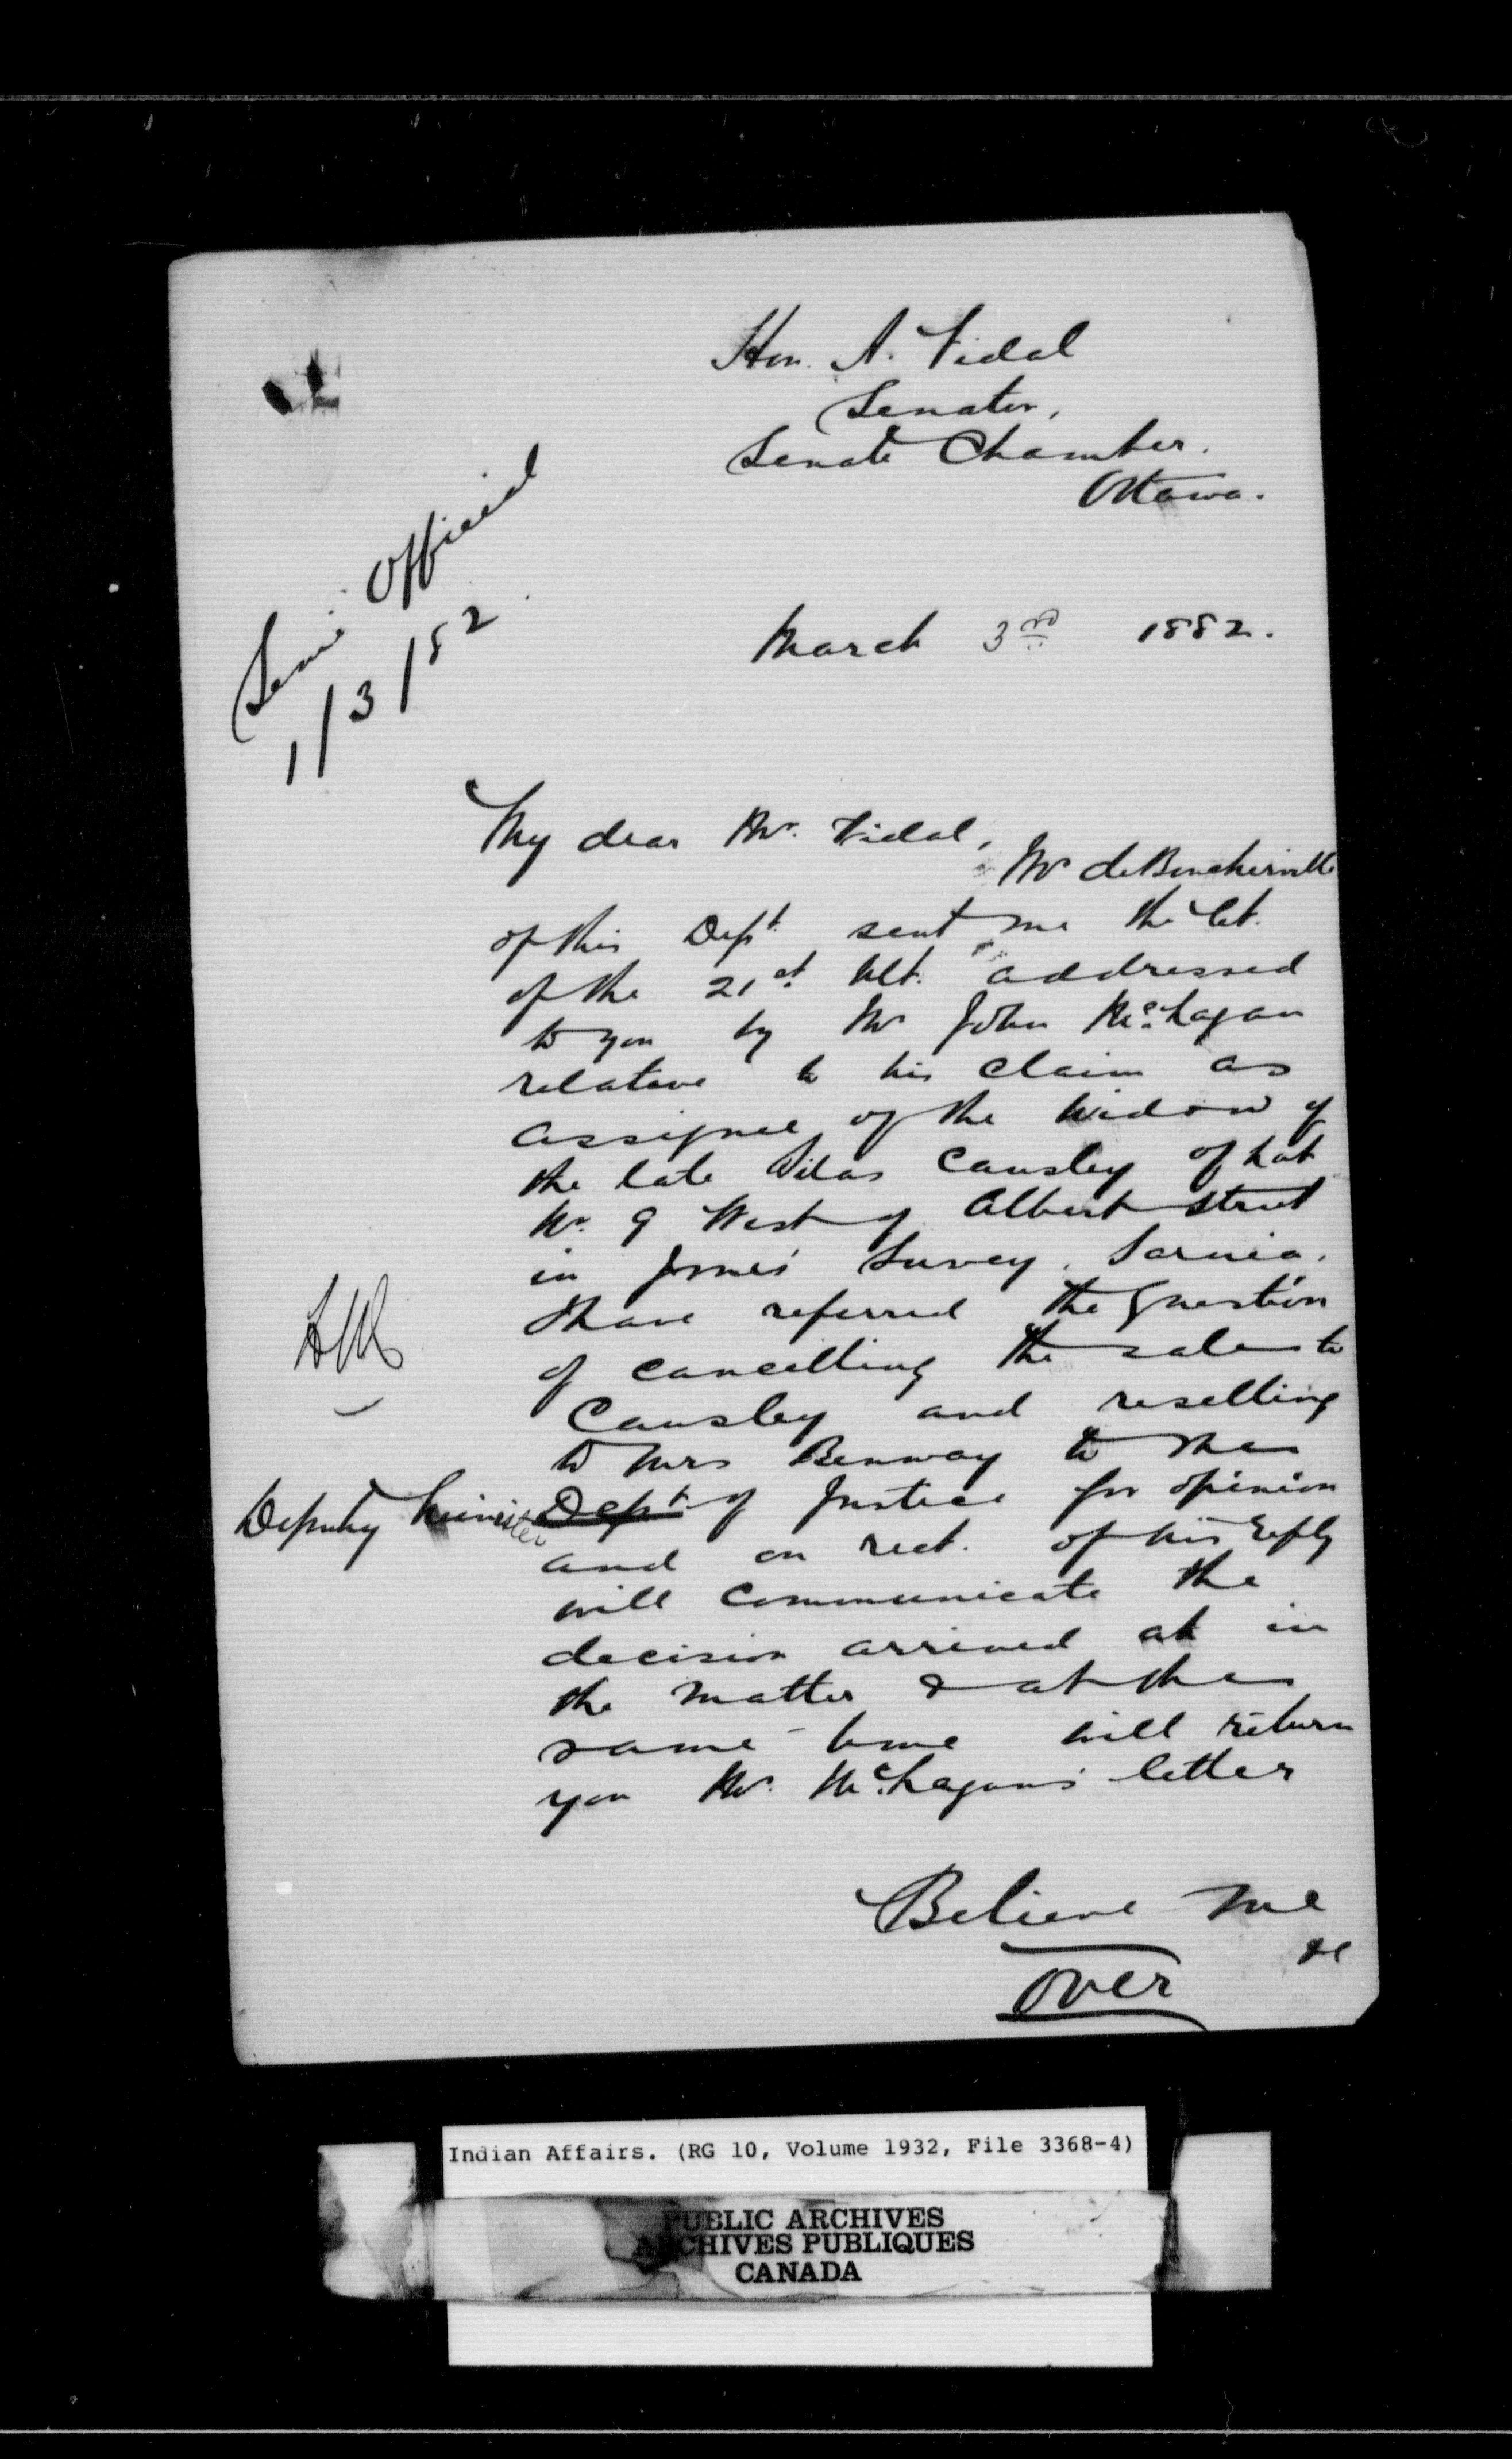 Hon. A. Vidal
Senator,
Senate Chamber.
Ottawa.
Semi Official
1/3/82
March 3rd 1882.
My dear Mr. Vidal,
Mr deBoucherville
of this Dept. sent me the let.
of the 21st Ult. addressed
to you by Mr John McLagan
relative to his claim as
assignee of the Widow of
the late Silas Causley of Lot
No. 9 West of Albert Street
in Jones' Survey, Sarnia.
I have referred the question
of cancelling the sale to
Causley and reselling
to Mrs Benway to the
Deputy Minister Dept. of Justice for opinion
and on rect. of his reply
will communicate the
decision arrived at in
the matter & at the
same time will return
you Mr. McLagan's letter
Believe me
&c
Over
Indian Affairs. (RG 10, Volume 1932, File 3368-4)
PUBLIC ARCHIVES
ARCHIVES PUBLIQUES
CANADA